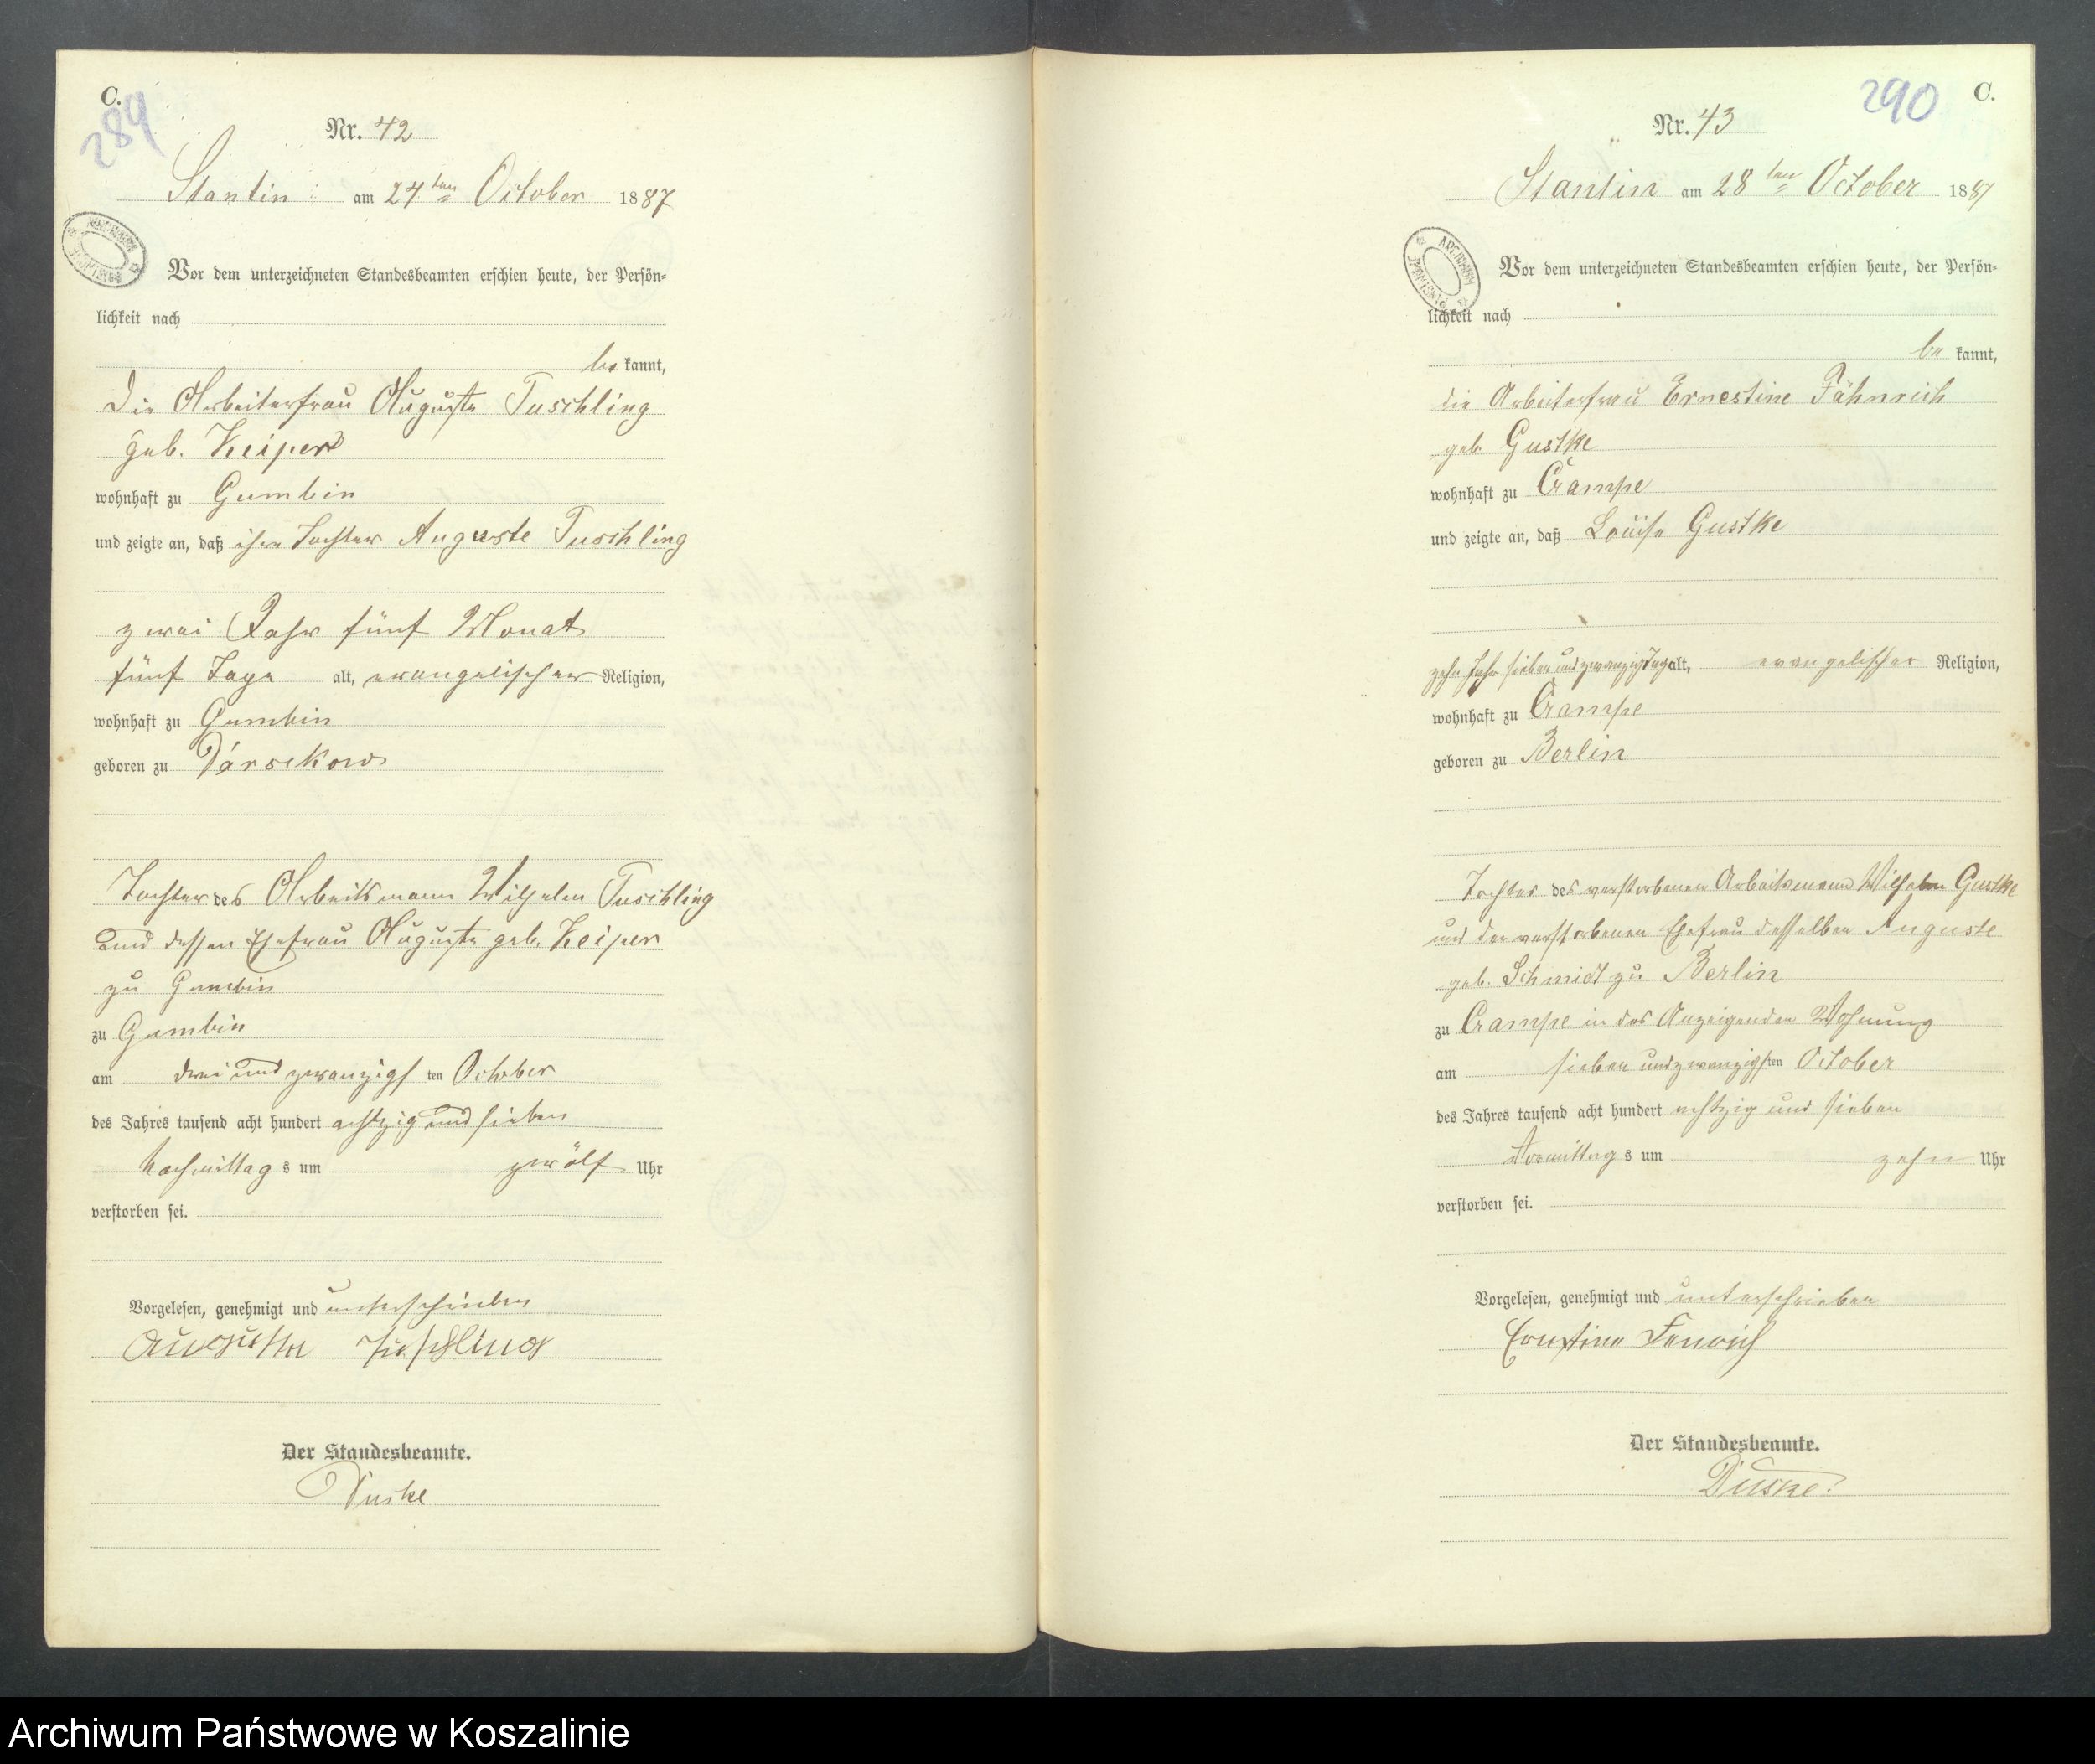 C.
289
Nr. 42
Stantin am 24ten October 1887
Vor dem unterzeichneten Standesbeamten erschien heute, der Persön-
lichkeit nach
be kannt,
die Arbeiterfrau Auguste Tuschling
geb. Keiper
wohnhaft zu Gumbin
und zeigte an, daß ihre Tochter Auguste Tuschling
zwei Jahr fünf Monat
fünf Tage alt, evangelischer Religion,
wohnhaft zu Gumbin
geboren zu Darsekow
Tochter des Arbeitsmann Wilhelm Tuschling
und dessen Ehefrau Auguste geb. Keiper
zu Gumbin
zu Gumbin
am drei und zwanzigsten October
des Jahres tausend acht hundert achtzig und sieben
Nachmittags um zwölf Uhr
verstorben sei.
Vorgelesen, genehmigt und unterschrieben
Auguste Tuschling
Der Standesbeamte.
Duske
290
C.
Nr. 43
Stantin am 28ten October 1887
Vor dem unterzeichneten Standesbeamten erschien heute, der Persön-
lichkeit nach
be kannt,
die Arbeiterfrau Ernestine Fähnrich
geb. Gustke
wohnhaft zu Crampe
und zeigte an, daß Louise Gustke
zehn Jahr sieben und zwanzig Tag alt, evangelischer Religion,
wohnhaft zu Crampe
geboren zu Berlin
Tochter des verstorbenen Arbeitsmann Wilhelm Gustke
und der verstorbenen Ehefrau desselben Auguste
geb. Schmidt zu Berlin
zu Crampe in der Anzeigenden Wohnung
am sieben und zwanzigsten October
des Jahres tausend acht hundert achtzig und sieben
Vormittags um zehn Uhr
verstorben sei.
Vorgelesen, genehmigt und unterschrieben
Ernstine Fenrich
Der Standesbeamte.
Duske.
Archiwum Państwowe w Koszalinie